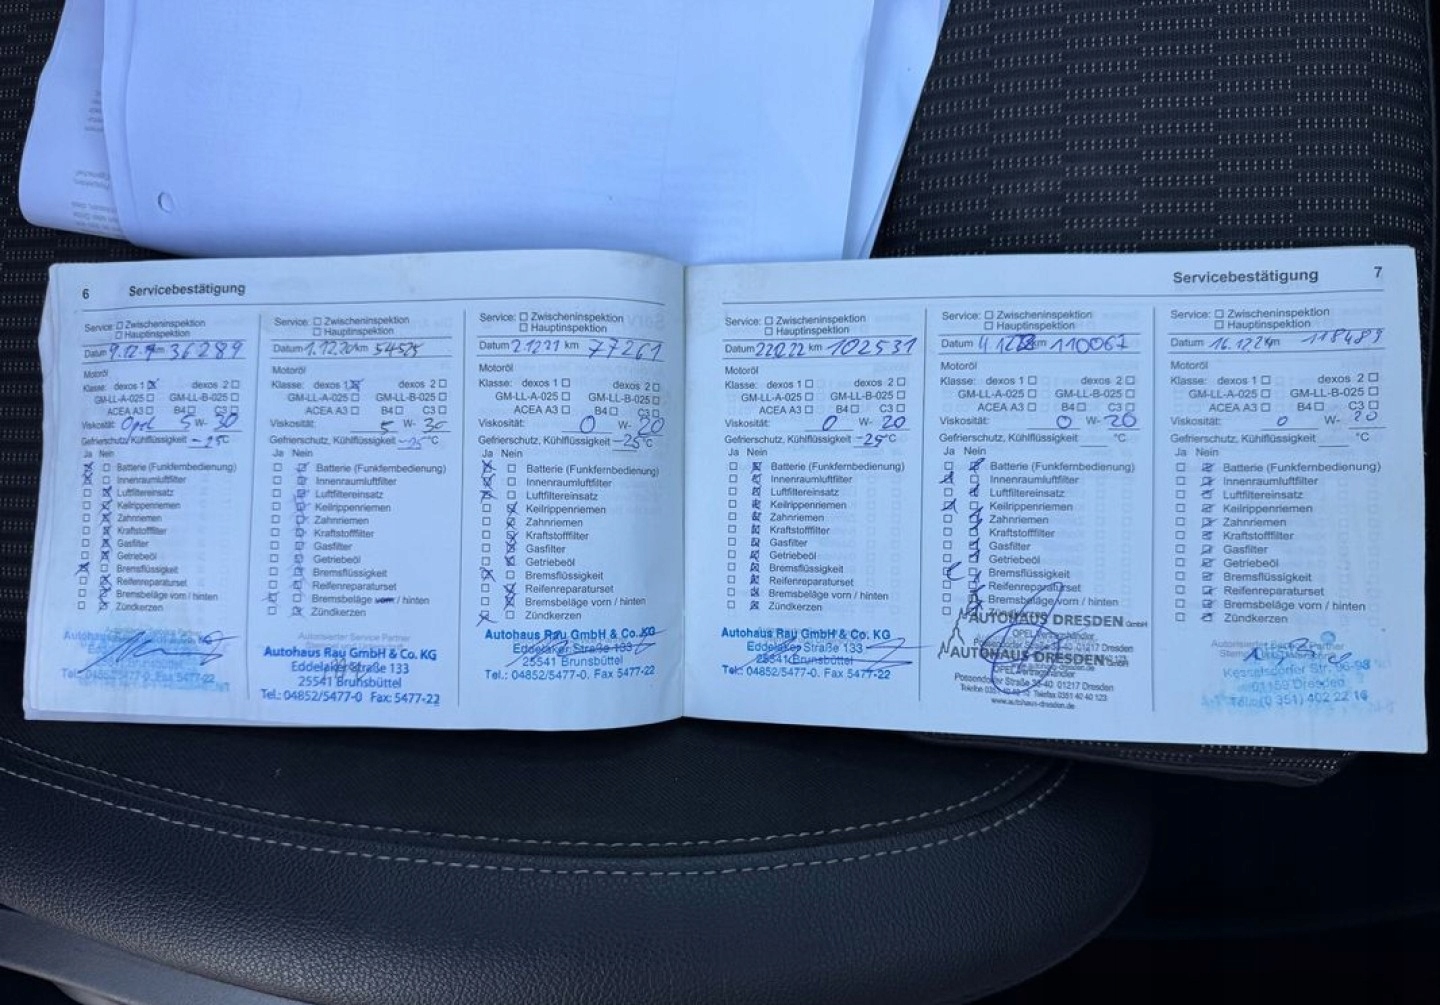 6 Servicebestätigung
Service: Zwischeninspektion
Hauptinspektion
Datum km 36289
Motoröl
Klasse: dexos 1 dexos 2
GM-LL-A-025 GM-LL-B-025
ACEA A3 B4 C3
Viskosität: Opel 5 W- 30
Gefrierschutz, Kühlflüssigkeit -25°C
Ja Nein
Batterie (Funkfernbedienung)
Innenraumluftfilter
Luftfiltereinsatz
Keilrippenriemen
Zahnriemen
Kraftstofffilter
Gasfilter
Getriebeöl
Bremsflüssigkeit
Reifenreparaturset
Bremsbeläge vorn / hinten
Zündkerzen
Service: Zwischeninspektion
Hauptinspektion
Datum 1.12.20 km
Motoröl
Klasse: dexos 1 dexos 2
GM-LL-A-025 GM-LL-B-025
ACEA A3 B4 C3
Viskosität: 5 W- 30
Gefrierschutz, Kühlflüssigkeit -25°C
Ja Nein
Batterie (Funkfernbedienung)
Innenraumluftfilter
Luftfiltereinsatz
Keilrippenriemen
Zahnriemen
Kraftstofffilter
Gasfilter
Getriebeöl
Bremsflüssigkeit
Reifenreparaturset
Bremsbeläge vorn / hinten
Zündkerzen
Autorisierter Service Partner
Autohaus Rau GmbH & Co. KG
Eddelaker Straße 133
25541 Brunsbüttel
Tel.: 04852/5477-0 Fax: 5477-22
Service: Zwischeninspektion
Hauptinspektion
Datum 21221 km 77261
Motoröl
Klasse: dexos 1 dexos 2
GM-LL-A-025 GM-LL-B-025
ACEA A3 B4 C3
Viskosität: 0 W- 20
Gefrierschutz, Kühlflüssigkeit -25°C
Ja Nein
Batterie (Funkfernbedienung)
Innenraumluftfilter
Luftfiltereinsatz
Keilrippenriemen
Zahnriemen
Kraftstofffilter
Gasfilter
Getriebeöl
Bremsflüssigkeit
Reifenreparaturset
Bremsbeläge vorn / hinten
Zündkerzen
Autohaus Rau GmbH & Co. KG
Eddelaker Straße 133
25541 Brunsbüttel
Tel.: 04852/5477-0. Fax 5477-22
Servicebestätigung 7
Service: Zwischeninspektion
Hauptinspektion
Datum km 102531
Motoröl
Klasse: dexos 1 dexos 2
GM-LL-A-025 GM-LL-B-025
ACEA A3 B4 C3
Viskosität: 0 W- 20
Gefrierschutz, Kühlflüssigkeit -25°C
Ja Nein
Batterie (Funkfernbedienung)
Innenraumluftfilter
Luftfiltereinsatz
Keilrippenriemen
Zahnriemen
Kraftstofffilter
Gasfilter
Getriebeöl
Bremsflüssigkeit
Reifenreparaturset
Bremsbeläge vorn / hinten
Zündkerzen
Autohaus Rau GmbH & Co. KG
Eddelaker Straße 133
25541 Brunsbüttel
Tel.: 04852/5477-0. Fax 5477-22
Service: Zwischeninspektion
Hauptinspektion
Datum km 110067
Motoröl
Klasse: dexos 1 dexos 2
GM-LL-A-025 GM-LL-B-025
ACEA A3 B4 C3
Viskosität: 0 W- 20
Gefrierschutz, Kühlflüssigkeit °C
Ja Nein
Batterie (Funkfernbedienung)
Innenraumluftfilter
Luftfiltereinsatz
Keilrippenriemen
Zahnriemen
Kraftstofffilter
Gasfilter
Getriebeöl
Bremsflüssigkeit
Reifenreparaturset
Bremsbeläge vorn / hinten
Zündkerzen
AUTOHAUS DRESDEN GmbH
AUTOHAUS DRESDEN
Possendorfer Straße 38-40 01217 Dresden
www.autohaus-dresden.de
Service: Zwischeninspektion
Hauptinspektion
Datum km 118489
Motoröl
Klasse: dexos 1 dexos 2
GM-LL-A-025 GM-LL-B-025
ACEA A3 B4 C3
Viskosität: 0 W- 20
Gefrierschutz, Kühlflüssigkeit °C
Ja Nein
Batterie (Funkfernbedienung)
Innenraumluftfilter
Luftfiltereinsatz
Keilrippenriemen
Zahnriemen
Kraftstofffilter
Gasfilter
Getriebeöl
Bremsflüssigkeit
Reifenreparaturset
Bremsbeläge vorn / hinten
Zündkerzen
Kesselsdorfer Str.
Dresden